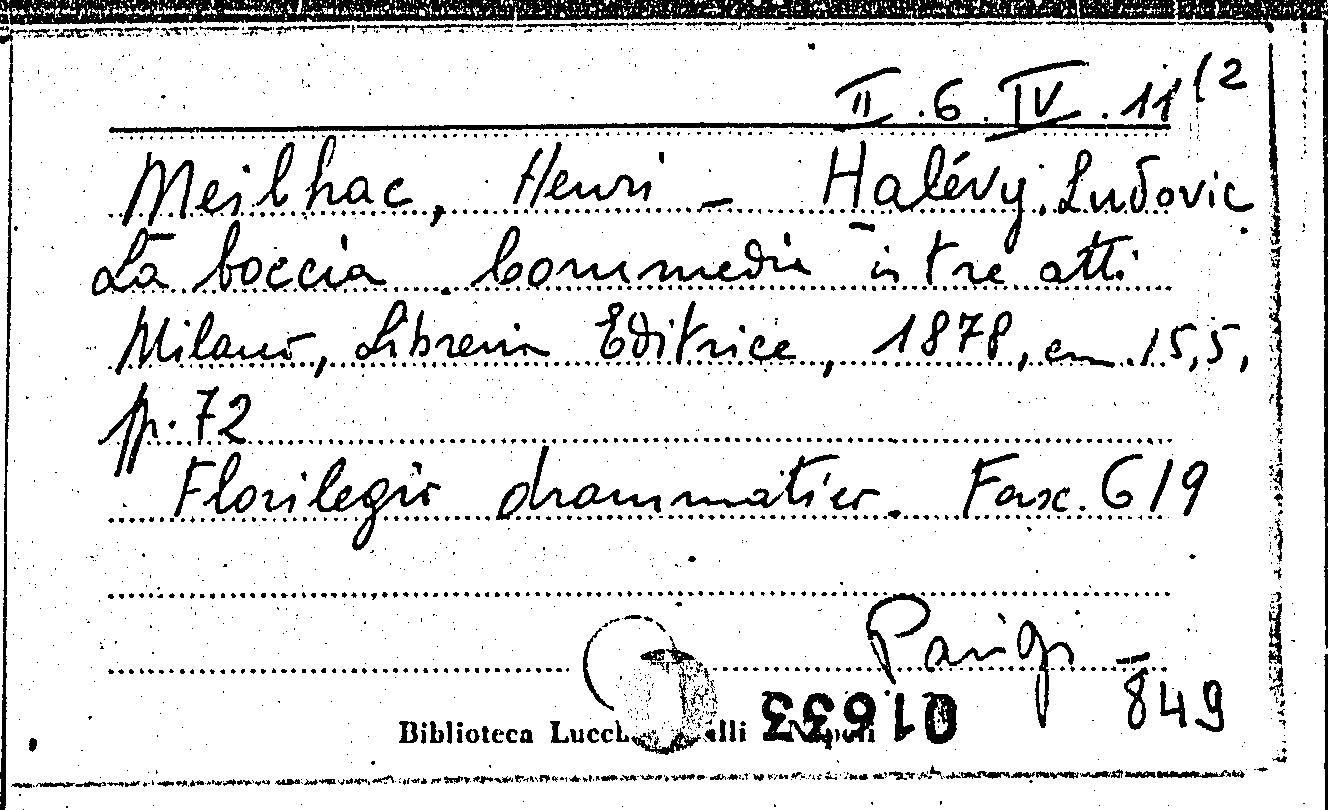 II.6.IV.11(2
Meilhac, Henri - Halévy, Ludovic
La boccia. Commedia in tre atti
Milano, Libreria Editrice, 1878, cm. 15,5,
p. 72
Florilegio drammatico. Fasc. 619
Parigi -
849
01633
Biblioteca Lucch alli Napoli